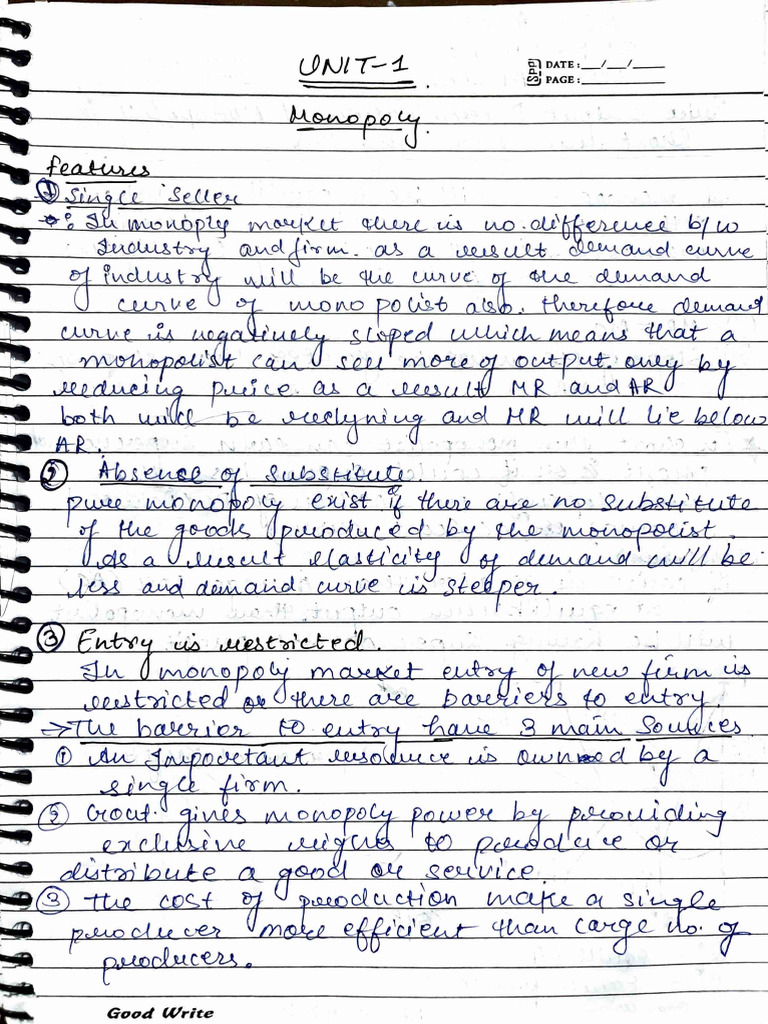 UNIT-1
Spp DATE: __/__/__
PAGE: ________
Monopoly.
features
① Single Seller
In monoply market there is no difference b/w
Industry and firm. as a result demand curve
of industry will be the curve of the demand
curve of monopolist also. therefore demand
curve is negatively sloped which means that a
monopolist can sell more of output only by
reducing price as a result MR and AR
both will be reclyning and MR will lie below
AR.
② Absence of Substitute.
pure monopoly exist if there are no substitute
of the goods produced by the monopolist.
As a result elasticity of demand will be
less and demand curve is steeper.
③ Entry is restricted.
In monopoly market entry of new firm is
restricted or there are barriers to entry.
→ The barrier to entry have 3 main Sources
① An Important resource is owned by a
single firm.
② Govt. gives monopoly power by providing
exclusive to produce or
distribute a good or service
③ the cost of production make a single
producer more efficient than large no. of
producers.
Good Write